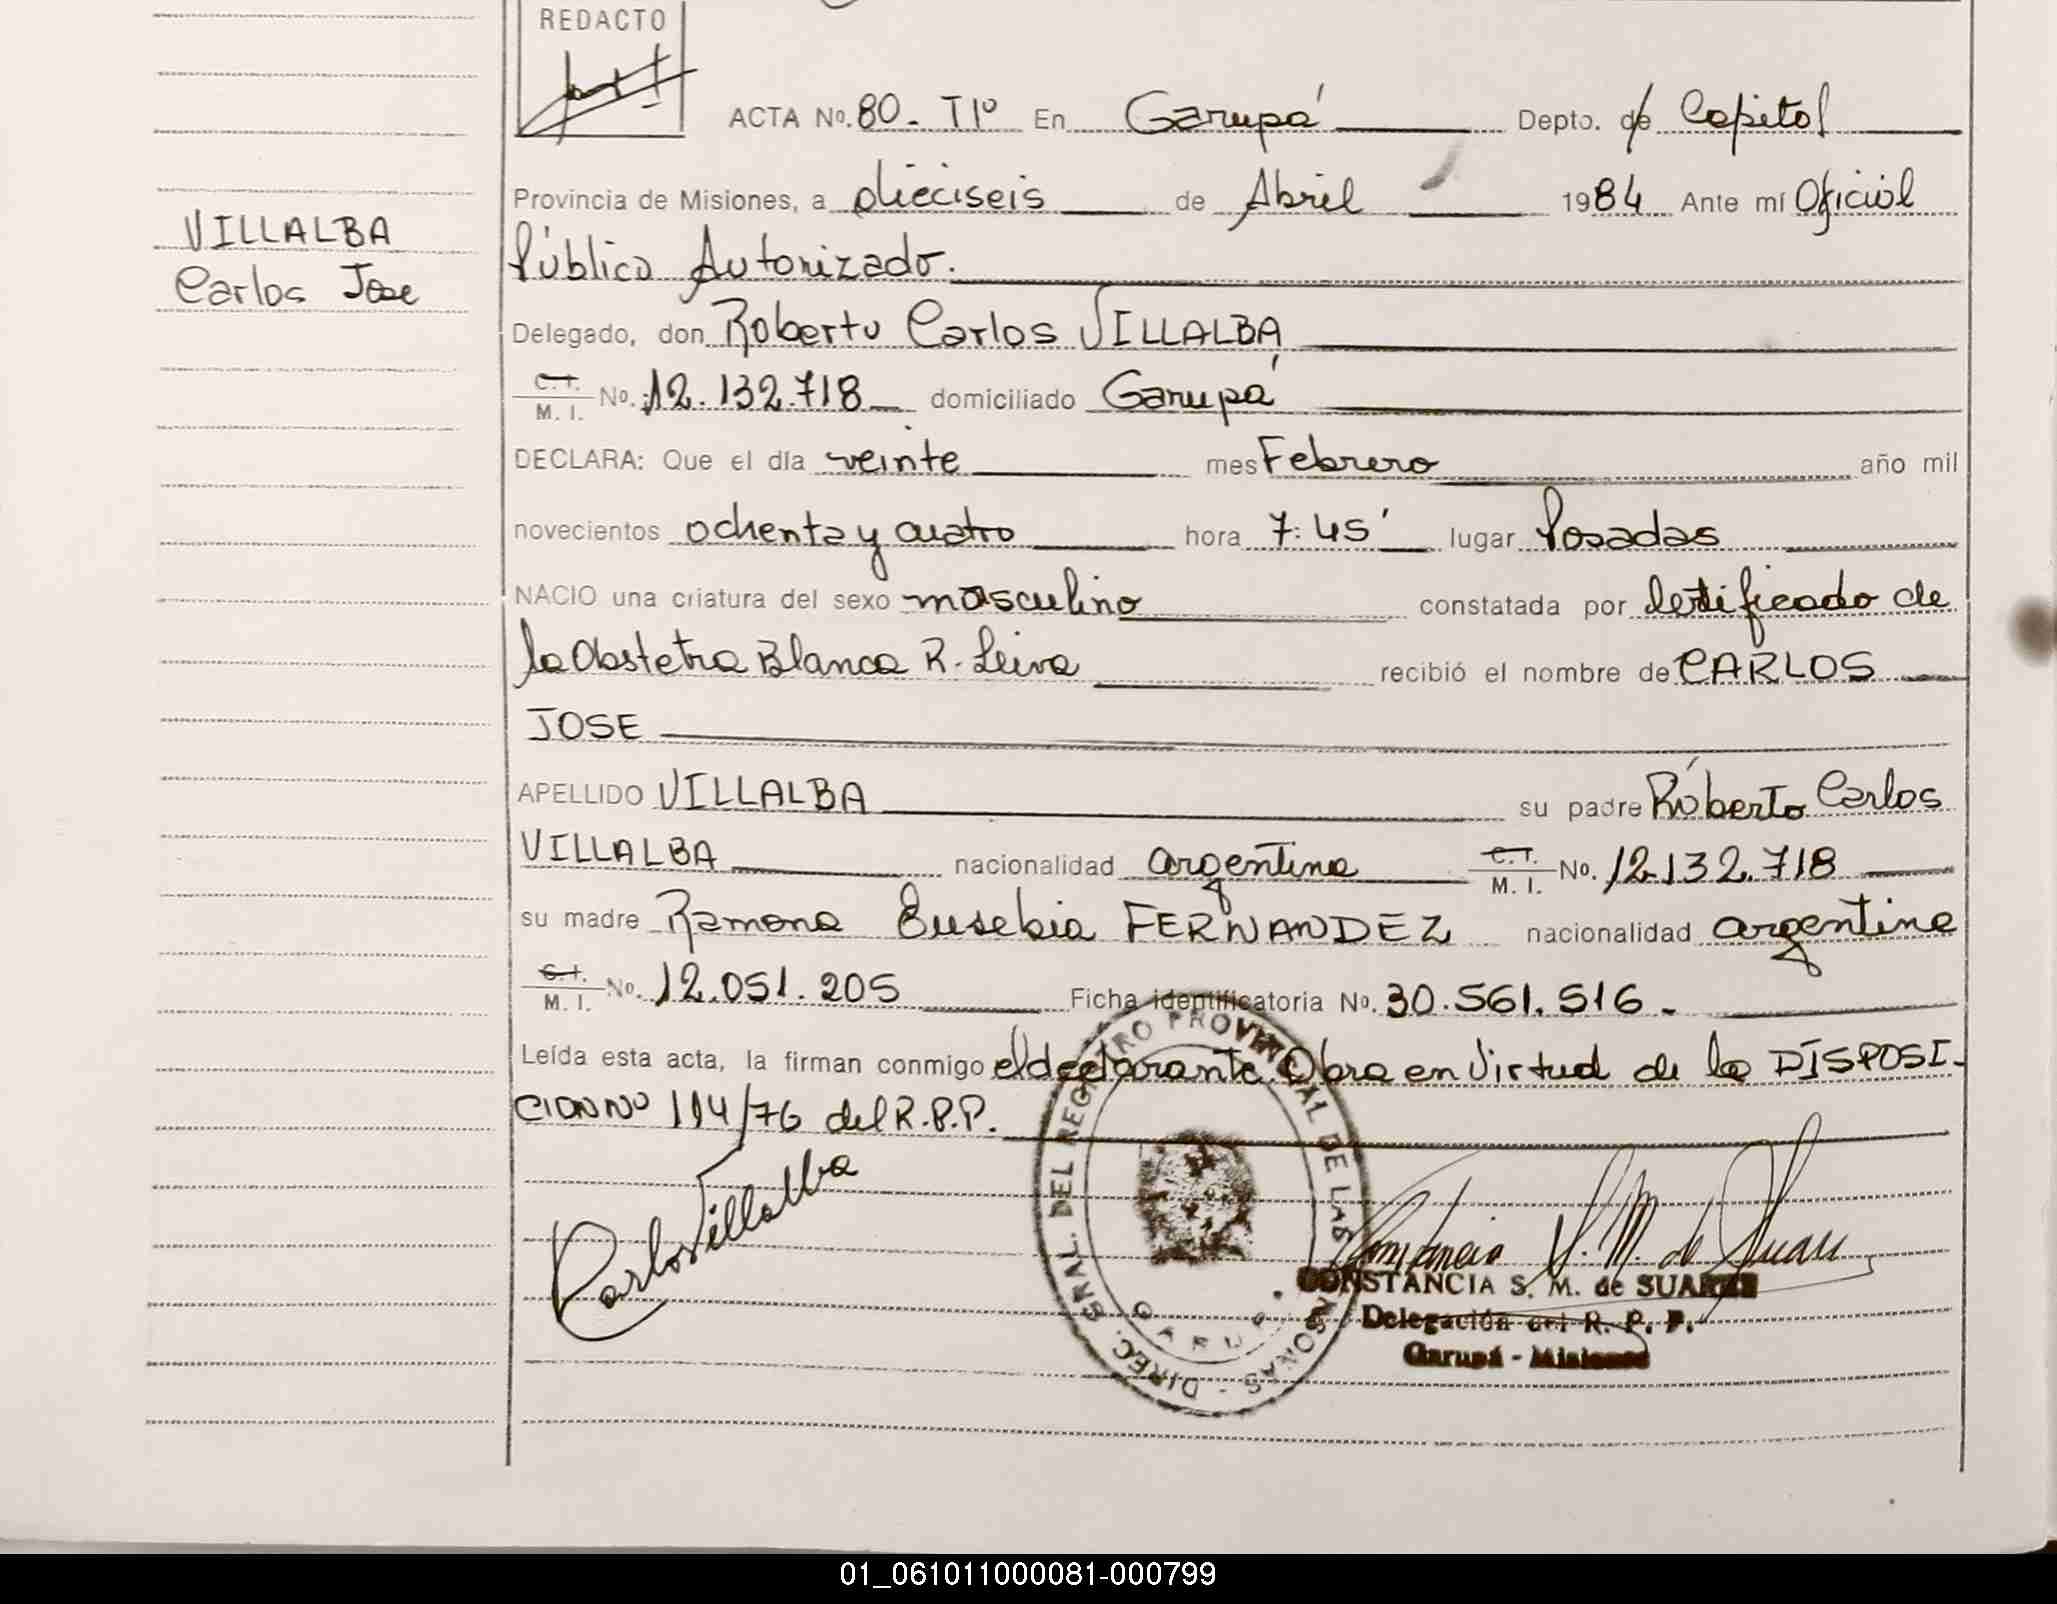 REDACTO
ACTA No. 80 - T1º En Garupá Depto. de Capital
Provincia de Misiones, a dieciseis de Abril 1984 Ante mí Oficial
VILLALBA
Público Autorizado.
Carlos Jose
Delegado, don Roberto Carlos VILLALBA
C.I. M. I. No. 12.132.718 domiciliado Garupá
DECLARA: Que el día veinte mes Febrero año mil
novecientos ochenta y cuatro hora 7:45' lugar Posadas
NACIO una criatura del sexo masculino constatada por Certificado de
la Obstetra Blanca R. Leiva recibió el nombre de CARLOS
JOSE
APELLIDO VILLALBA su padre Roberto Carlos
VILLALBA nacionalidad argentina C.I. M. I. No. 12.132.718
su madre Ramona Eusebia FERNANDEZ nacionalidad argentina
C.I. M. I. No. 12.051.205 Ficha identificatoria No. 30.561.516.-
Leída esta acta, la firman conmigo el declarante. Obra en Virtud de la DISPOSI-
CION Nº 114/76 del R.P.P.
Carlos Villalba
DIREC. GRAL. DEL REGISTRO PROVINCIAL DE LAS PERSONAS -
GARUPA
Constancia S. M. de Suarez
CONSTANCIA S. M. de SUAREZ
Delegación del R. P. P.
Garupá - Misiones
01_061011000081-000799